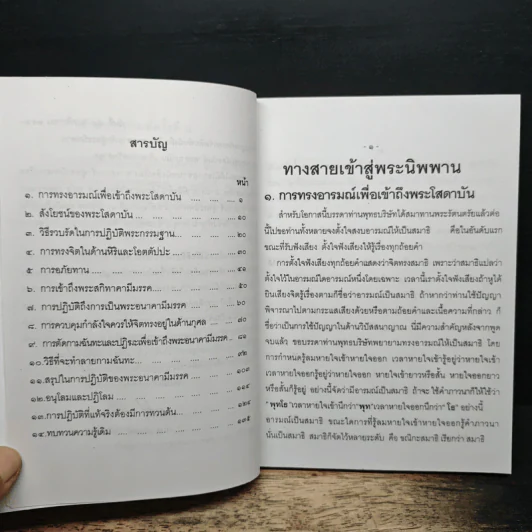 สารบัญ
หน้า
๑. การทรงอารมณ์เพื่อเข้าถึงพระโสดาบัน ... ... ๑
๒. สังโยชน์ของพระโสดาบัน ... ... ... ... ๑๐
๓. วิธีรวบรัดในการปฏิบัติพระกรรมฐาน ... ... ๒๐
๔. การทรงจิตในด้านหิริและโอตตัปปะ ... ... ๓๐
๕ การอภัยทาน ... ... ... ... ... ๔๐
๖. การเข้าถึงพระสกิทาคามีมรรค ... ... ... ๕๐
๗. การปฏิบัติถึงการเป็นพระอนาคามีมรรค ... ...
๘. การควบคุมกำลังใจควรให้จิตทรงอยู่ในด้านกุศล ...
๙. การตัดกามฉันทะและปฏิฆะเพื่อเข้าถึงพระอนาคามีมรรค
๑๐.วิธีที่จะทำลายกามฉันทะ ... ... ... ... ๙๒
๑๑.สรุปในการปฏิบัติของพระอนาคามีมรรค ... ...
๑๒.อนุโลมและปฏิโลม ... ... ... ...
๑๓.การปฏิบัติที่แท้จริงต้องมีการทวนต้น ... ...
๑๔.ทบทวนความรู้เดิม ... ... ... ... ๑๓๕
- ๑ -
ทางสายเข้าสู่พระนิพพาน
๑. การทรงอารมณ์เพื่อเข้าถึงพระโสดาบัน
สำหรับโอกาสนี้บรรดาท่านพุทธบริษัทได้สมาทานพระรัตนตรัยแล้วต่อ
นี้ไปขอท่านทั้งหลายจงตั้งใจสงบอารมณ์ให้เป็นสมาธิ คือในอันดับแรก
ขณะที่รับฟังเสียง ตั้งใจฟังเสียงให้รู้เรื่องทุกถ้อยคำ
การตั้งใจฟังเสียงทุกถ้อยคำแสดงว่าจิตทรงสมาธิ เพราะว่าสมาธิแปลว่า
ตั้งใจไว้ในอารมณ์ใดอารมณ์หนึ่งโดยเฉพาะ เวลานี้เราตั้งใจฟังเสียงถ้าหูได้
ยินเสียงจิตรู้เรื่องตามก็ชื่อว่าอารมณ์เป็นสมาธิ ถ้าหากว่าท่านใช้ปัญญา
พิจารณาไปตามกระแสเสียงด้วยหรือตามถ้อยคำและเนื้อความที่กล่าว ก็
ชื่อว่าเป็นการใช้ปัญญาในด้านวิปัสสนาญาณ นี่มีความสำคัญหลังจากพูด
จบแล้ว ขอบรรดาท่านพุทธบริษัทพยายามทรงอารมณ์ให้เป็นสมาธิ โดย
การกำหนดรู้ลมหายใจเข้าหายใจออก เวลาหายใจเข้ารู้อยู่ว่าหายใจเข้า
เวลาหายใจออกรู้อยู่ว่าหายใจออก หายใจเข้ายาวหรือสั้น หายใจออกยาว
หรือสั้นก็รู้อยู่ อย่างนี้จัดว่ามีอารมณ์เป็นสมาธิ ถ้าจะ ใช้คำภาวนาก็ให้ใช้ว่า
" พุทโธ "เวลาหายใจเข้านึกว่า"พุท"เวลาหายใจออกนึกว่า" โธ" อย่างนี้
อารมณ์เป็นสมาธิ ขณะใดที่รู้ลมหายใจเข้าหายใจออกรู้คำภาวนา
นั่นเป็นสมาธิ สมาธิก็จัดไว้หลายระดับ คือ ขณิกะสมาธิ เรียกว่า สมาธิ